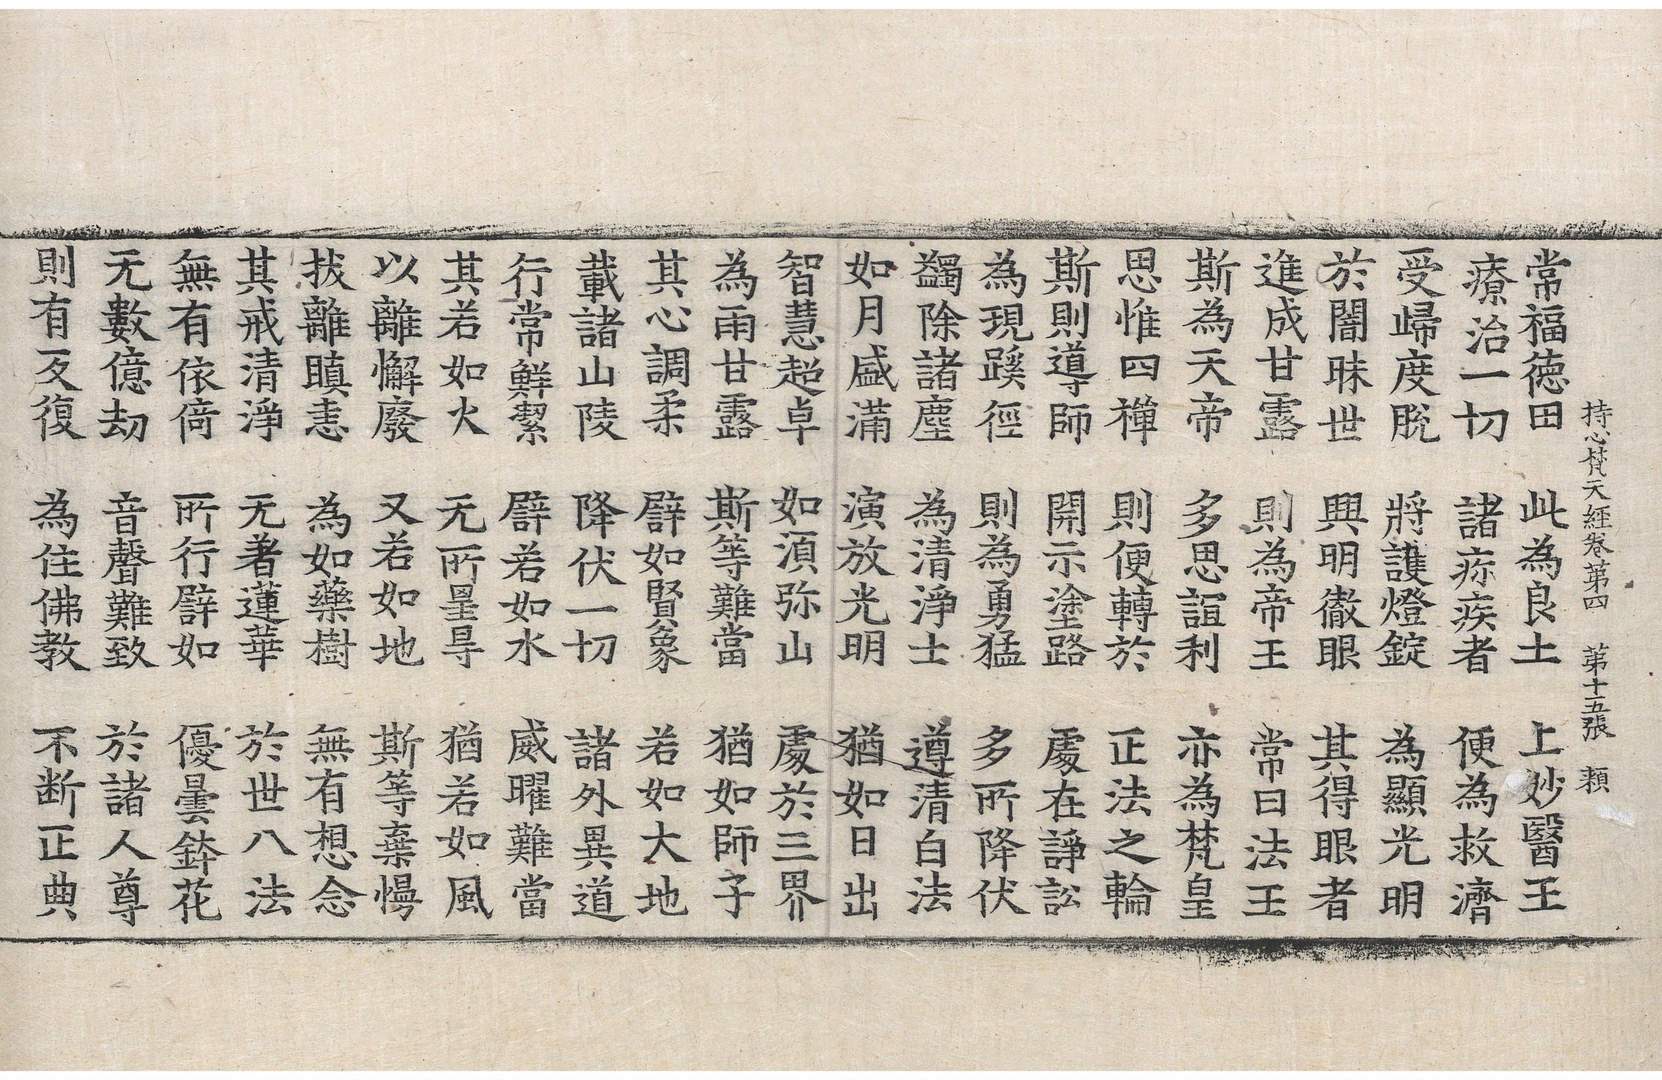 持心梵天經卷第四　第十五張　頛
常福德田　此為良土　上妙醫王
療治一切　諸疢疾者　便為救濟
受歸度脫　將護燈錠　為顯光明
於闇昧世　興明徹眼　其得眼者
進成甘露　則為帝王　常曰法王
斯為天帝　多思誼利　亦為梵皇
思惟四禪　則便轉於　正法之輪
斯則導師　開示塗路　處在諍訟
為現蹊徑　則為勇猛　多所降伏
蠲除諸塵　為清淨士　遵清白法
如月盛滿　演放光明　猶如日出
智慧超卓　如須弥山　處於三界
為雨甘露　斯等難當　猶如師子
其心調柔　譬如賢象　若如大地
載諸山陵　降伏一切　諸外異道
行常鮮潔　譬若如水　威曜難當
其若如火　无所罣导　猶若如風
以離懈廢　又若如地　斯等棄慢
拔離瞋恚　為如藥樹　無有想念
其戒清淨　无著蓮華　於世八法
無有依倚　所行譬如　優曇鉢花
无數億劫　音聲難致　於諸人尊
則有反復　為住佛教　不断正典